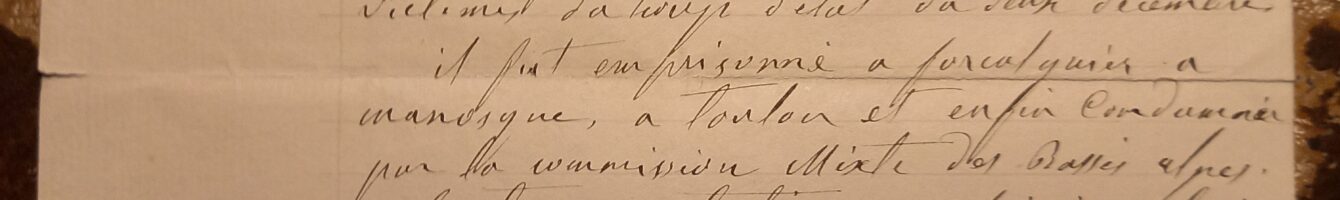 victimes du coup d'etat du deux decembre
il fut emprisonné a forcalquier a
manosque, a Toulon et enfin Condamnér
par la commission Mixte des Basses alpes.